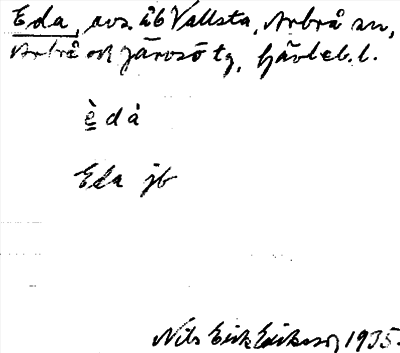 Eda, avs. åb Vallsta, Arbrå sn,
Arbrå och Järvsö tg, Gävleb. l.
è d à
Eda jb
Nils Erik Eriksson 1935.